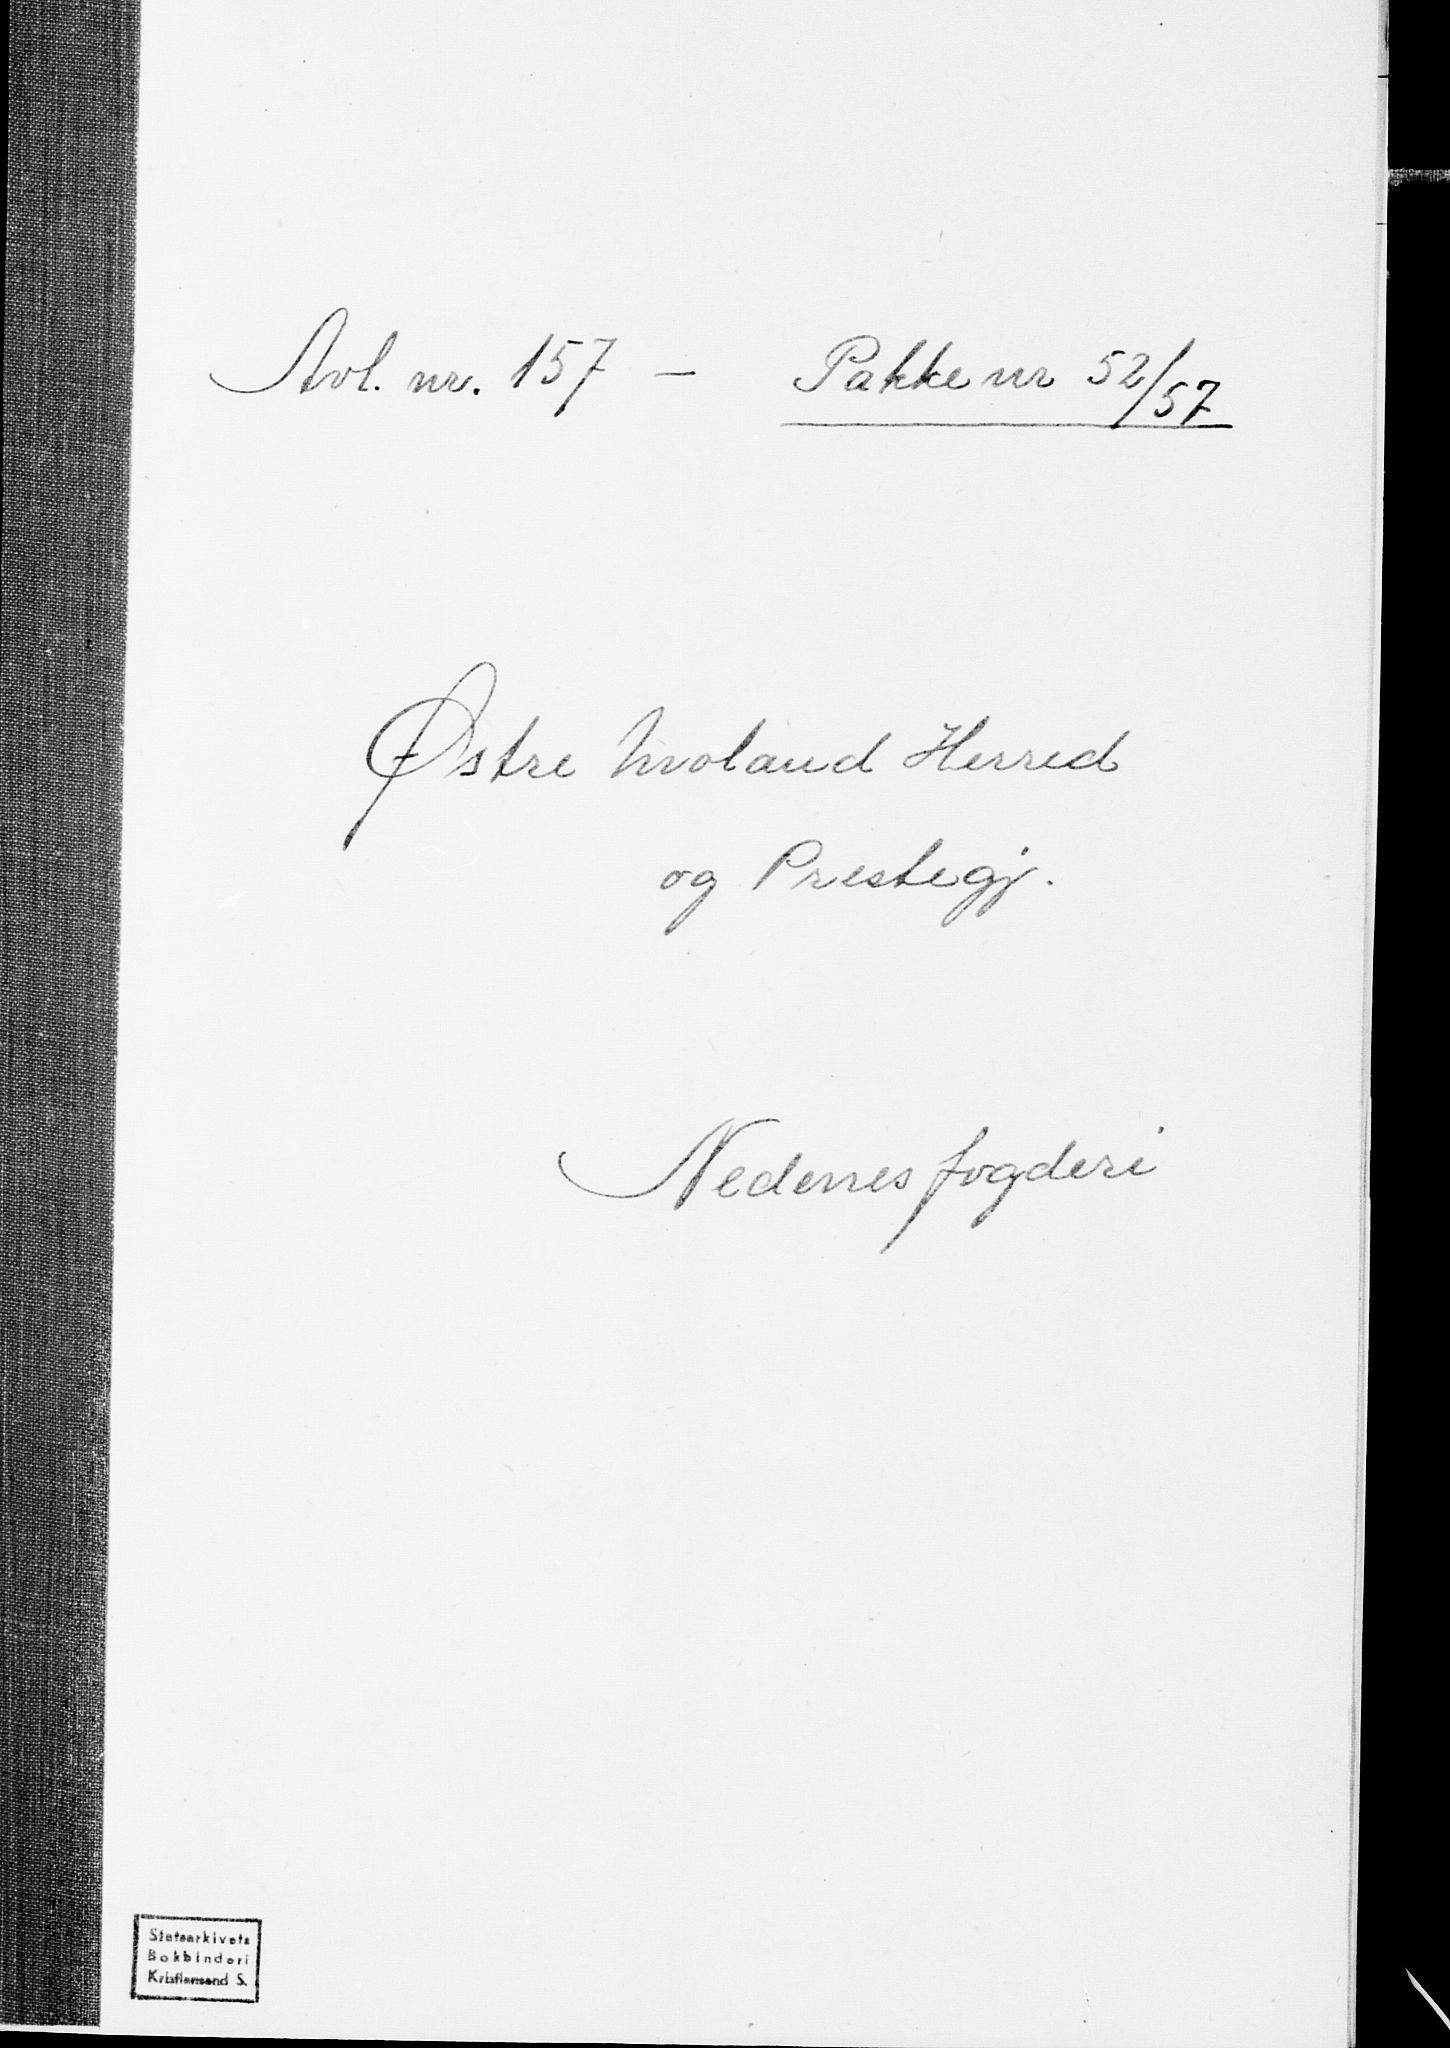 Avl. nr. 157 — Pakke nr 52/57
Østre Moland Herred
og Prestegj.
Nedenes fogderi
Statsarkivets
Bokbinderi
Kristiansand S.